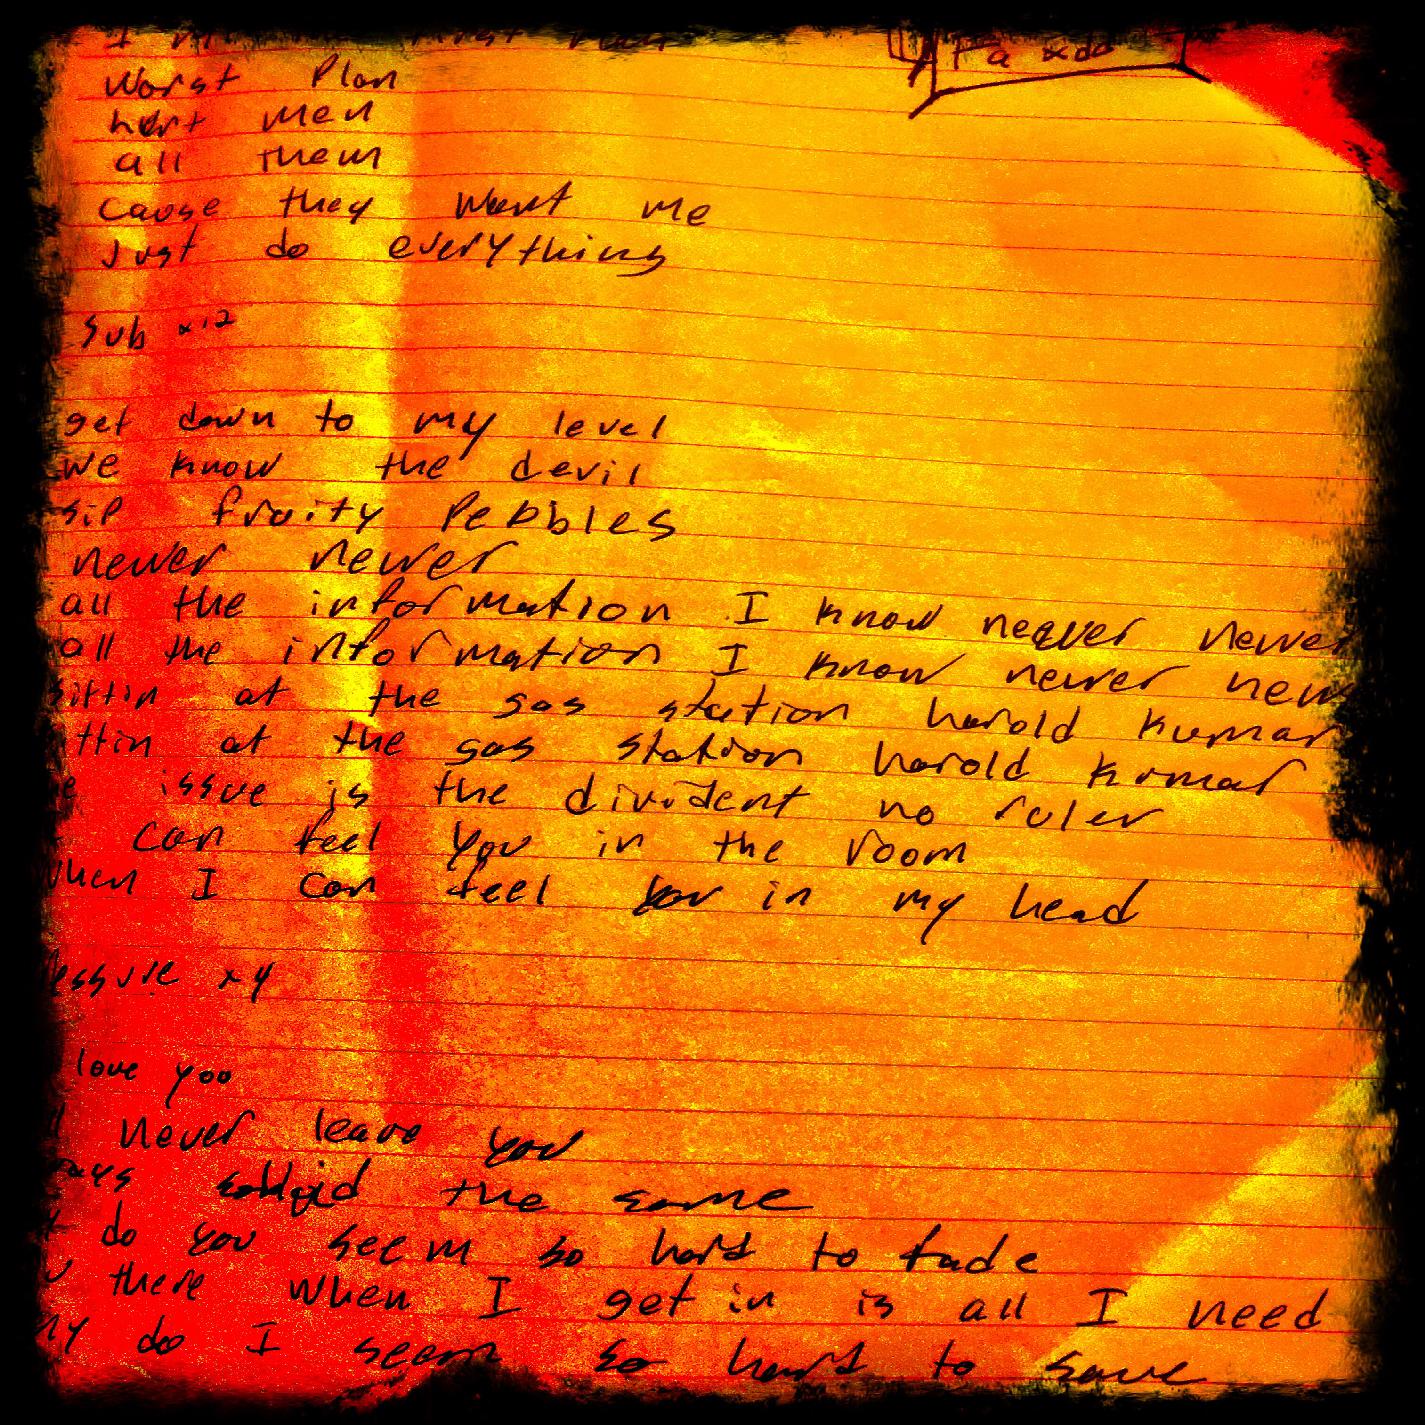 worst Plan
hurt men
all them
cause they want me
Just do everything
sub x12
get down to my level
we know the devil
sip fruity Pebbles
newer newer
all the information I know newer
all the information I know newer new
sittin at the gas station harold kumar
ttin at the gas station harold kumar
e issue is the divident no ruler
can feel you in the room
when I can feel you in my head
essure x4
love you
never leave you
ays the same
do you seem so hard to fade
there when I get in is all I need
hy do I seem so hard to save